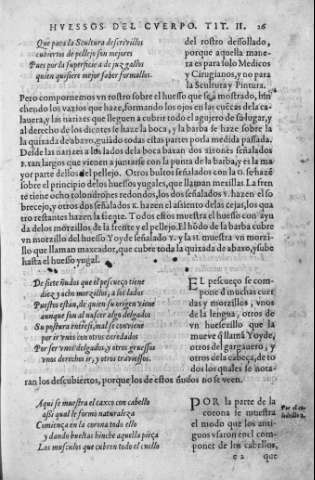 HVESSOS DEL CVERPO. TIT. II. 26
Que para la Scultura descrevillos
cubiertos de pellejo son mejores
Pues por la superficie a de juzgallos
quien quisiere mejor saber formallos.
del rostro desollado,
porque aquella mane-
ra es para solo Medicos
y Cirugianos, y no para
la Scultura y Pintura.
Pero compornemos vn rostro sobre el huesso que se a mostrado, hin-
chendo los vazios que haze, formando los ojos en las cuẽcas de la ca-
lauera, y las narizes que lleguen a cubrir todo el agujero de su lugar, y
al derecho de los dientes se haze la boca, y la barba se haze sobre la
la quixada de abaxo, guiado todas estas partes por la medida passada.
Desde las narizes a los lados de la boca baxan dos ratones señalados
R. tan largos que vienen a juntarse con la punta de la barba, y es la ma
yor parte dellos del pellejo. Otros bultos señalados con la
sobre el principio de los huessos yugales, que llaman mexillas. La fren
te tiene ocho tolondrones redondos, los dos señalados
brecejo, y otros dos señalados hazen el assiento de las cejas, los qua
tro restantes hazen la frente. Todos estos muestra el huesso con ayu
da de los morzillos de la frente y del pellejo. El hõdo de la barba cubre
vn morzillo del huesso Yoyde señalado Y. y la muestra vn morzi-
llo que llaman maxcador, que cubre toda la quixada de abaxo, y sube
hasta el huesso yugal.
De siete ñudos que el pescueço tiene
diez y ocho morzillos, a los lados
Puestos están, de quien su origen viene
aunque son al nascer algo delgados
Su postura entiesi, mal se conviene
por ir vnos con otros encordados
Por ser vnos delgados, y otros gruessos
vnos derechos ir, y otros traviessos.
EL pescueço se com-
pone d muchas cuer
das y morzillos, vnos
de la lengua, otros de
vn huesezillo que la
mueve q̃ llamã Yoyde,
otros del gargauero, y
otros de la cabeça, de to
dos los quales se nota-
ran los descubiertos, porque los de estos ñudos no se veen.
Aqui se muestra el caxco con cabello
assi qual le formo naturaleza
Comiença en la corona todo ello
y dando bueltas hinche aquella pieça
Los musculos que cubren todo el cuello
POR la parte de la
corona se muestra
el modo que los anti-
guos vsaron en el compo-
ner de los cabellos,
e 2 que